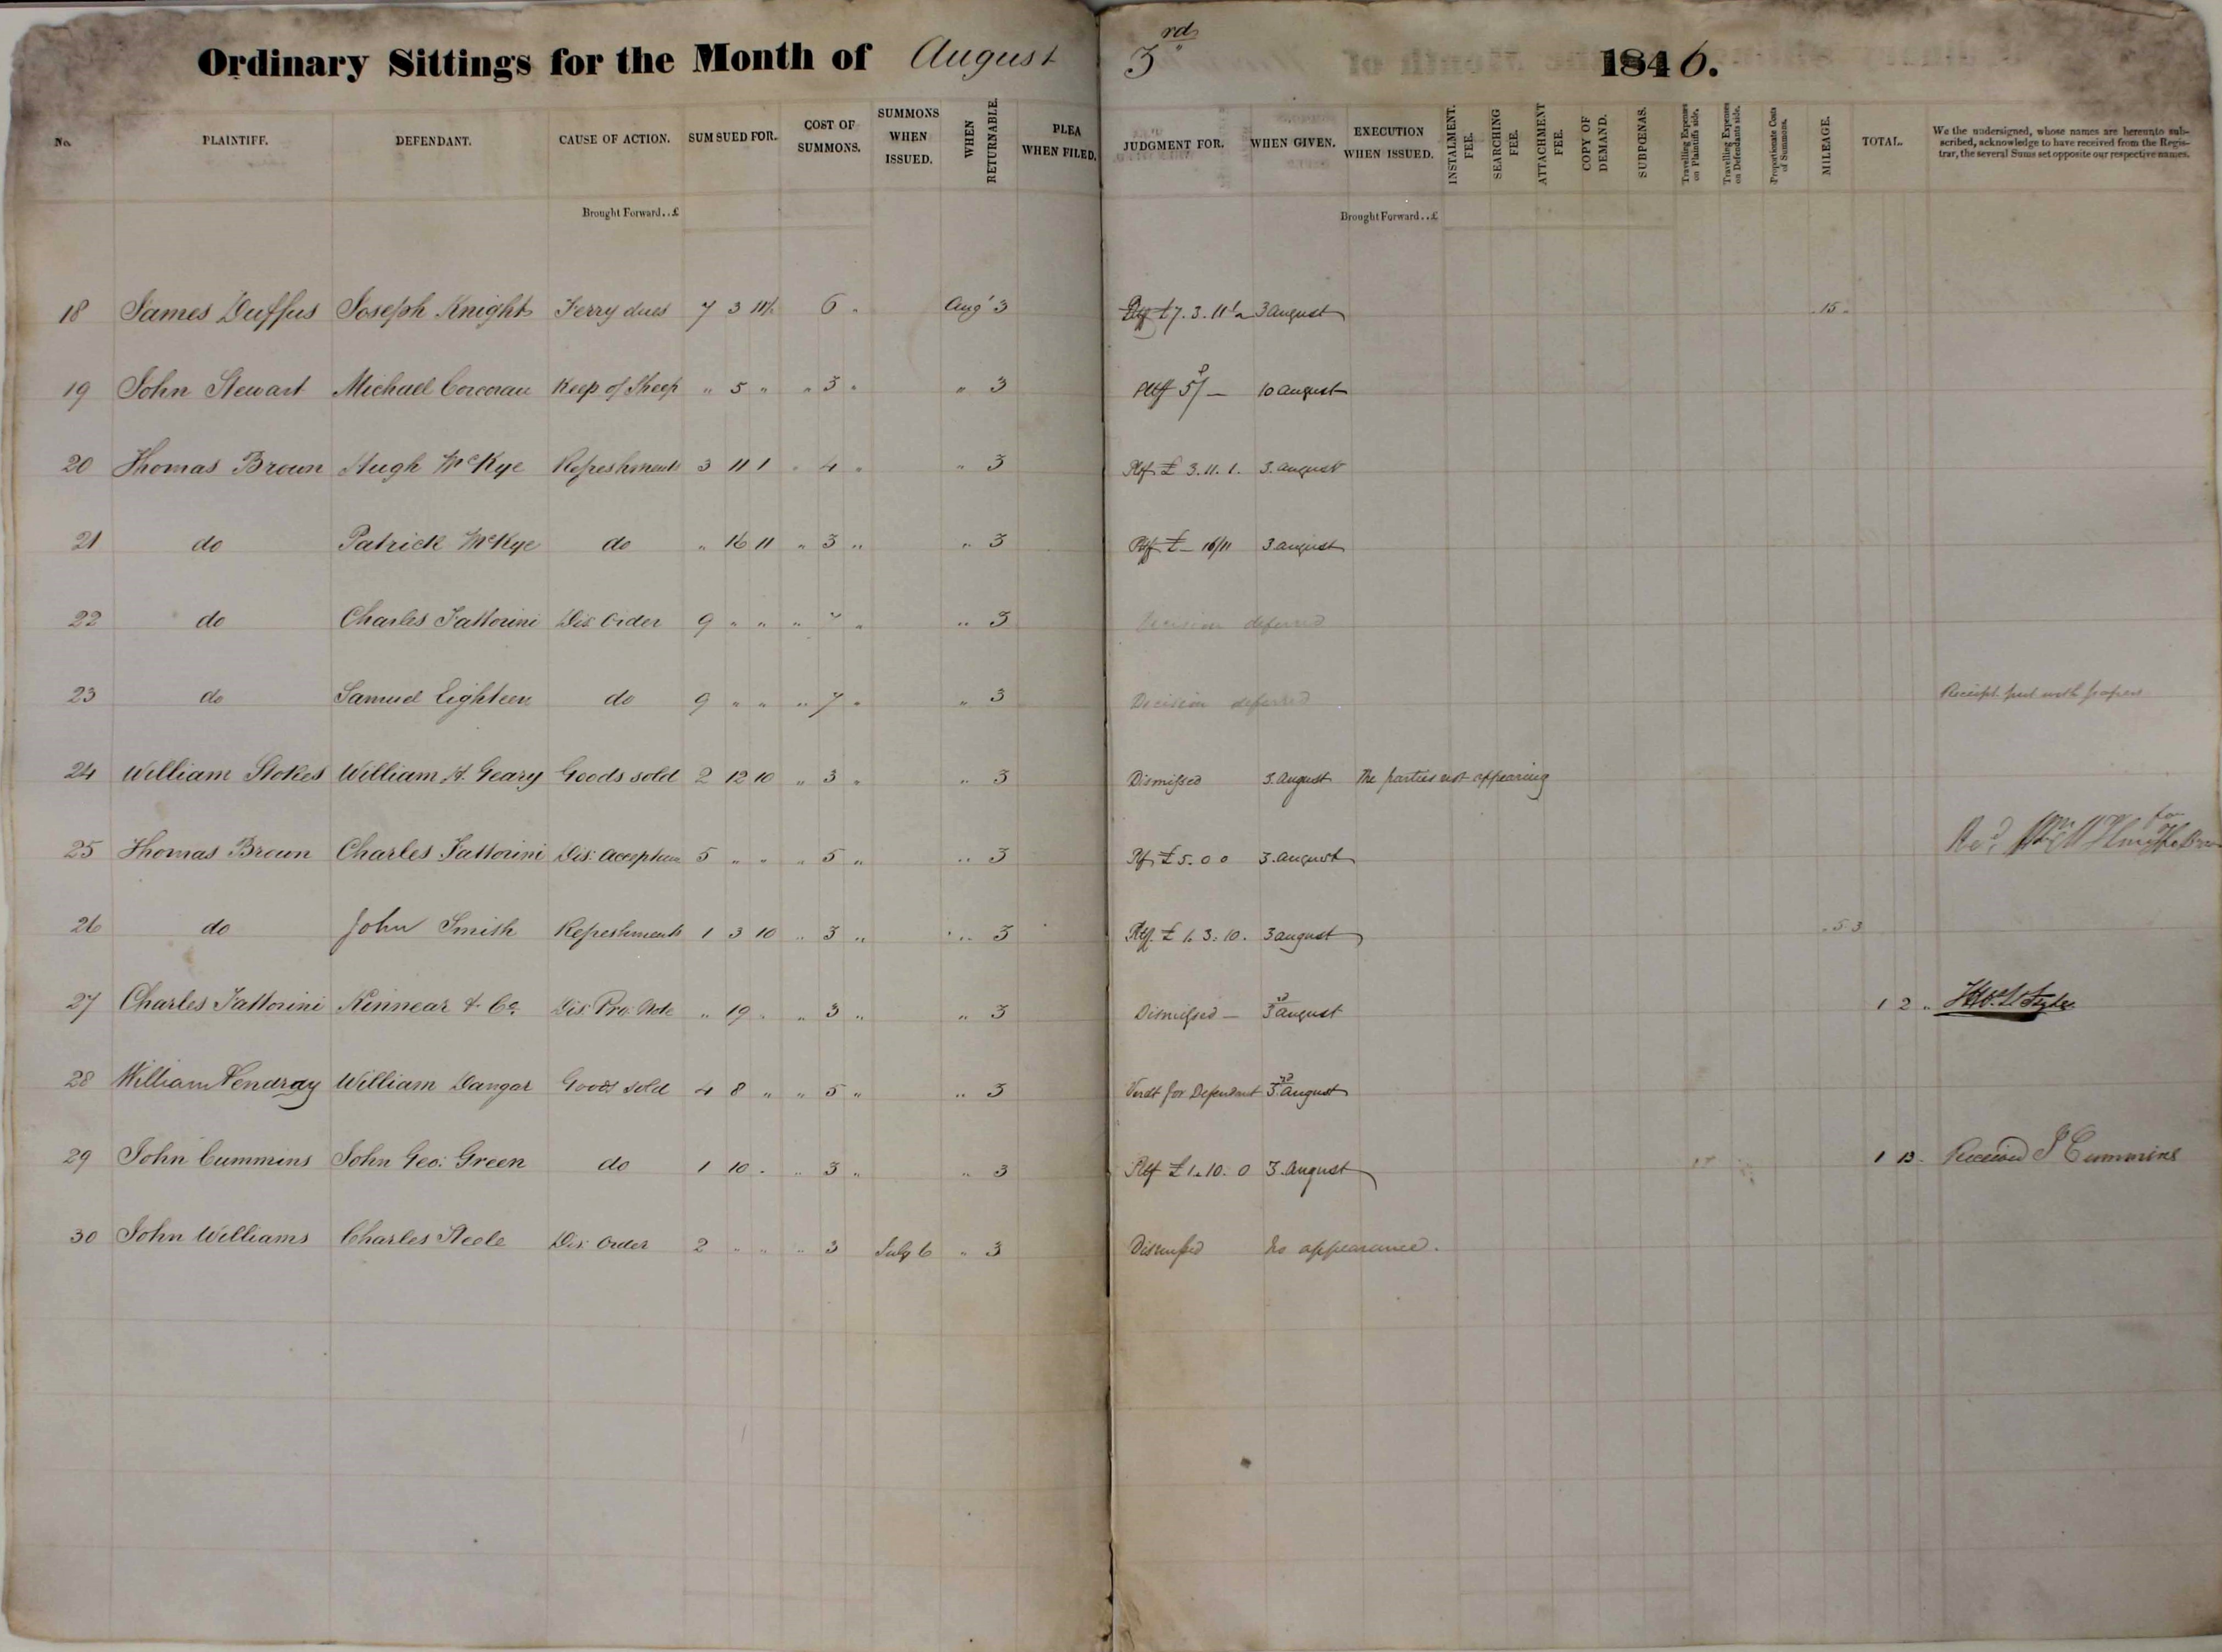 Ordinary Sittings for the Month of August 3rd 1846.
No. PLAINTIFF. DEFENDANT. CAUSE OF ACTION. SUM SUED FOR. COST OF SUMMONS. SUMMONS WHEN ISSUED. WHEN RETURNABLE. PLEA WHEN FILED. JUDGMENT FOR. WHEN GIVEN. EXECUTION WHEN ISSUED. INSTALMENT. FEE. SEARCHING FEE. ATTACHMENT FEE. COPY OF DEMAND. SUBPŒNAS. Travelling Expenses on Plaintiffs side. Travelling Expenses on Defendants side. Proportionate Costs of Summons. MILEAGE. TOTAL. We the undersigned, whose names are hereunto subscribed, acknowledge to have received from the Registrar, the several Sums set opposite our respective names.
Brought Forward..£ Brought Forward..£
18 James Duffus Joseph Knight Ferry dues 7 3 11½ 6 " Aug' 3 Ptff £7. 3. 11½ 3 August 15
19 John Stewart Michael Corcoran Keep of Sheep " 5 " " 3 " " 3 Ptff 5/– 10 August
20 Thomas Brown Hugh McKye Refreshments 3 11 1 " 4 " " 3 Ptf. £ 3. 11. 1. 3. August
21 do Patrick McKye do " 16 11 " 3 " " 3 Ptf £– 16/11 3 August
22 do Charles Fattorini Dis. Order 9 " " " 7 " " 3 Decision deferred
23 do Samuel Eighteen do 9 " " " 7 " " 3 Decision deferred Receipt put with papers
24 William Stokes William A. Geary Goods sold 2 12 10 " 3 " " 3 Dismissed 3. August The parties not appearing
25 Thomas Brown Charles Fattorini Dis. Acceptance 5 " " " 5 " " 3 Ptf. £ 5. 0 0 3. August Recd for
26 do John Smith Refreshments 1 3 10 " 3 " " 3 Ptf. £ 1. 3. 10. 3 August 5 3
27 Charles Fattorini Kinnear & Co. Dis. Pro. Note " 19 " " 3 " " 3 Dismissed – 3d August 1 2 "
28 William Vendray William Dangar Goods sold 4 8 " " 5 " " 3 Verdt for Defendant 3rd August
29 John Cummins John Geo: Green do 1 10 " " 3 " " 3 Ptf £ 1. 10. 0 3. August 1 13 " Received J Cummins
30 John Williams Charles Steele Dis. Order 2 " " " 3 July 6 " 3 Dismissed No appearance.